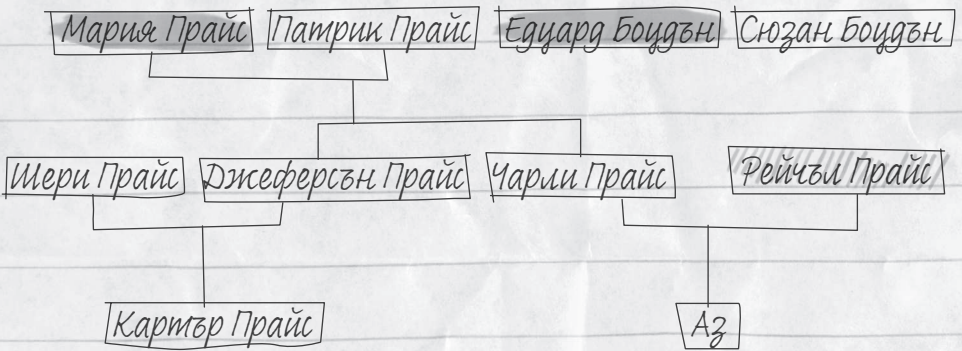 Мария Прайс Патрик Прайс Едуард Боудън Сюзан Боудън
Шери Прайс Джеферсън Прайс Чарли Прайс Рейчъл Прайс
Картър Прайс Аз